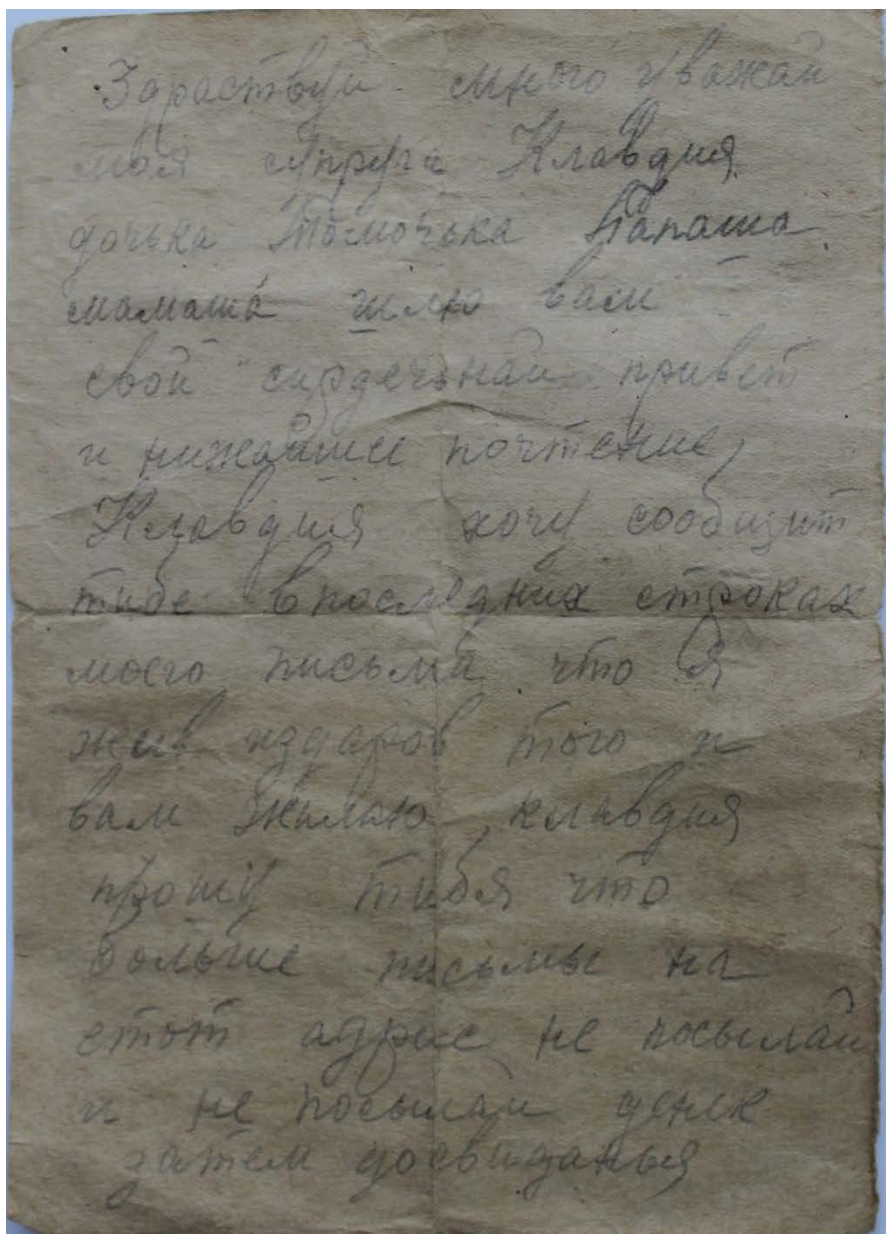 Здраствуй много уважай
моя супруга Клавдия
дочька Томочька Папаша
мамаша шлю вам
свой сирдечьнай привет
и нижайшие почтение,
Клавдия хочу сообщит
тибе впоследних строках
моего письма что я
жив издаров того и
вам жылаю, клавдия
прошу тибя что
больше письмы на
етот адрис не посылай
и не посылай денек
затем досвиданья